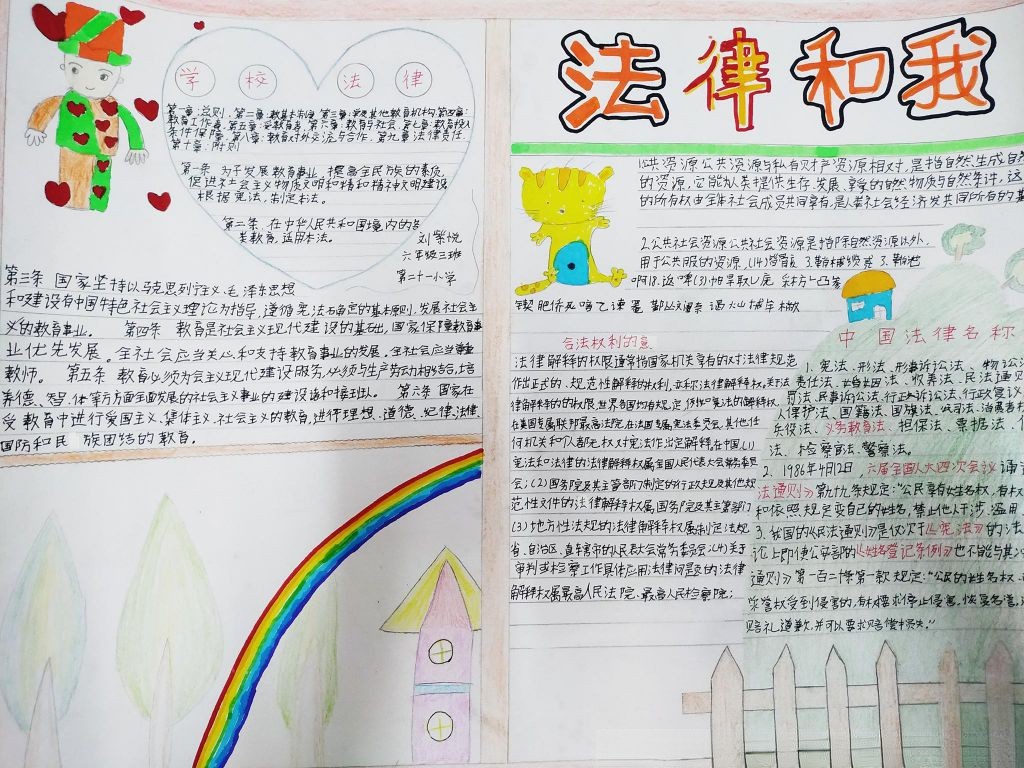 学校法律
第一章:总则 第二章:教育基本制度 第三章:学校及其他教育机构 第四章:
教育工作者 第五章:受教育者 第六章:教育与社会 第七章:教育投入
条件保障 第八章:教育对外交流与合作 第九章 法律责任
第十章:附则
第一条 为了发展教育事业,提高全民族的素质,
促进社会主义物质文明和精和精神文明建设
根据宪法,制定本法。
第二条 在中华人民共和国境内的各
类教育,适用本法。
刘紫悦
六年级三班
第二十一小学
第三条 国家坚持以马克思列宁主义、毛泽东思想
和建设有中国特色社会主义理论为指导,遵循宪法确定的基本原则,发展社会主
义的教育事业。 第四条 教育是社会主义现代建设的基础,国家保障教育事
业优先发展。全社会应当关心和支持教育事业的发展。全社会应当尊重
教师。 第五条 教育必须为会主义现代建设服务,必须与生产劳动相结合,培
养德、智、体等方面全面发展的社会主义事业的建设者和接班人。 第六条 国家在
受教育中进行爱国主义、集体主义、社会主义的教育,进行理想、道德、纪律、法律、
国防和民族团结的教育。
法律和我
1公共资源公共资源与私有财产资源相对,是指自然生成自然
的资源,它能为人类提供生存、发展、享受的自然物质与自然条件,这
的所有权由全体社会成员共同享有,是人类社会经济发共同所有的基
2.公共社会资源公共社会资源是指除自然资源以外,
用于公共服的资源,
合法权利的意
法律解释的权限通常指国家机关享有的对法律规范
作出正式的、规范性解释的权利,亦称法律解释权。
律解释的的权限,世界各国均有规定,例如:宪法的解释权
在美国专属联邦最高法院,在法国专属宪法委员会,其他任
何机关和个人都无权对宪法作出定解释,在中国,(1)
宪法和法律的法律解释权属全国人民代表大会常务委员
会;(2)国务院及其主管部门制定的行政规及其他规
范性文件的法律解释权,属国务院及其主管部门
(3)地方性法规的法律解释权属制定法规
省、自治区、直辖市的人民代大会常务委员会;(4)关于
审判或检察工作具体应用法律问题的法律
解释权属最高人民法院、最高人民检察院;
中国法律名称
1.宪法、刑法、刑事诉讼法、物讼公
责任法、婚姻国法、收养法、民法通见
法、民事诉讼法、行政诉讼法、行政复议
人保护法、国籍法、国旗法、
兵役法、义务教育法、担保法、票据法、
法、检察官法、警察法。
2. 1986年4月2日,六届全国人大四次会议通
法通则》第九十九条规定:“公民享有姓名权,有权
和依照规定变自己的姓名,禁止他人干涉、滥用
3.我国的《民法通则》是仅次于《宪法》的法
讼上即使公安部的《姓名登记条例》也不能与其
通则》第一百二十条第一款规定:“公民的姓名权、
荣誉权受到侵害的,有权要求停止侵害,恢复名誉,
赔礼道歉,并可以要求赔偿损失。”